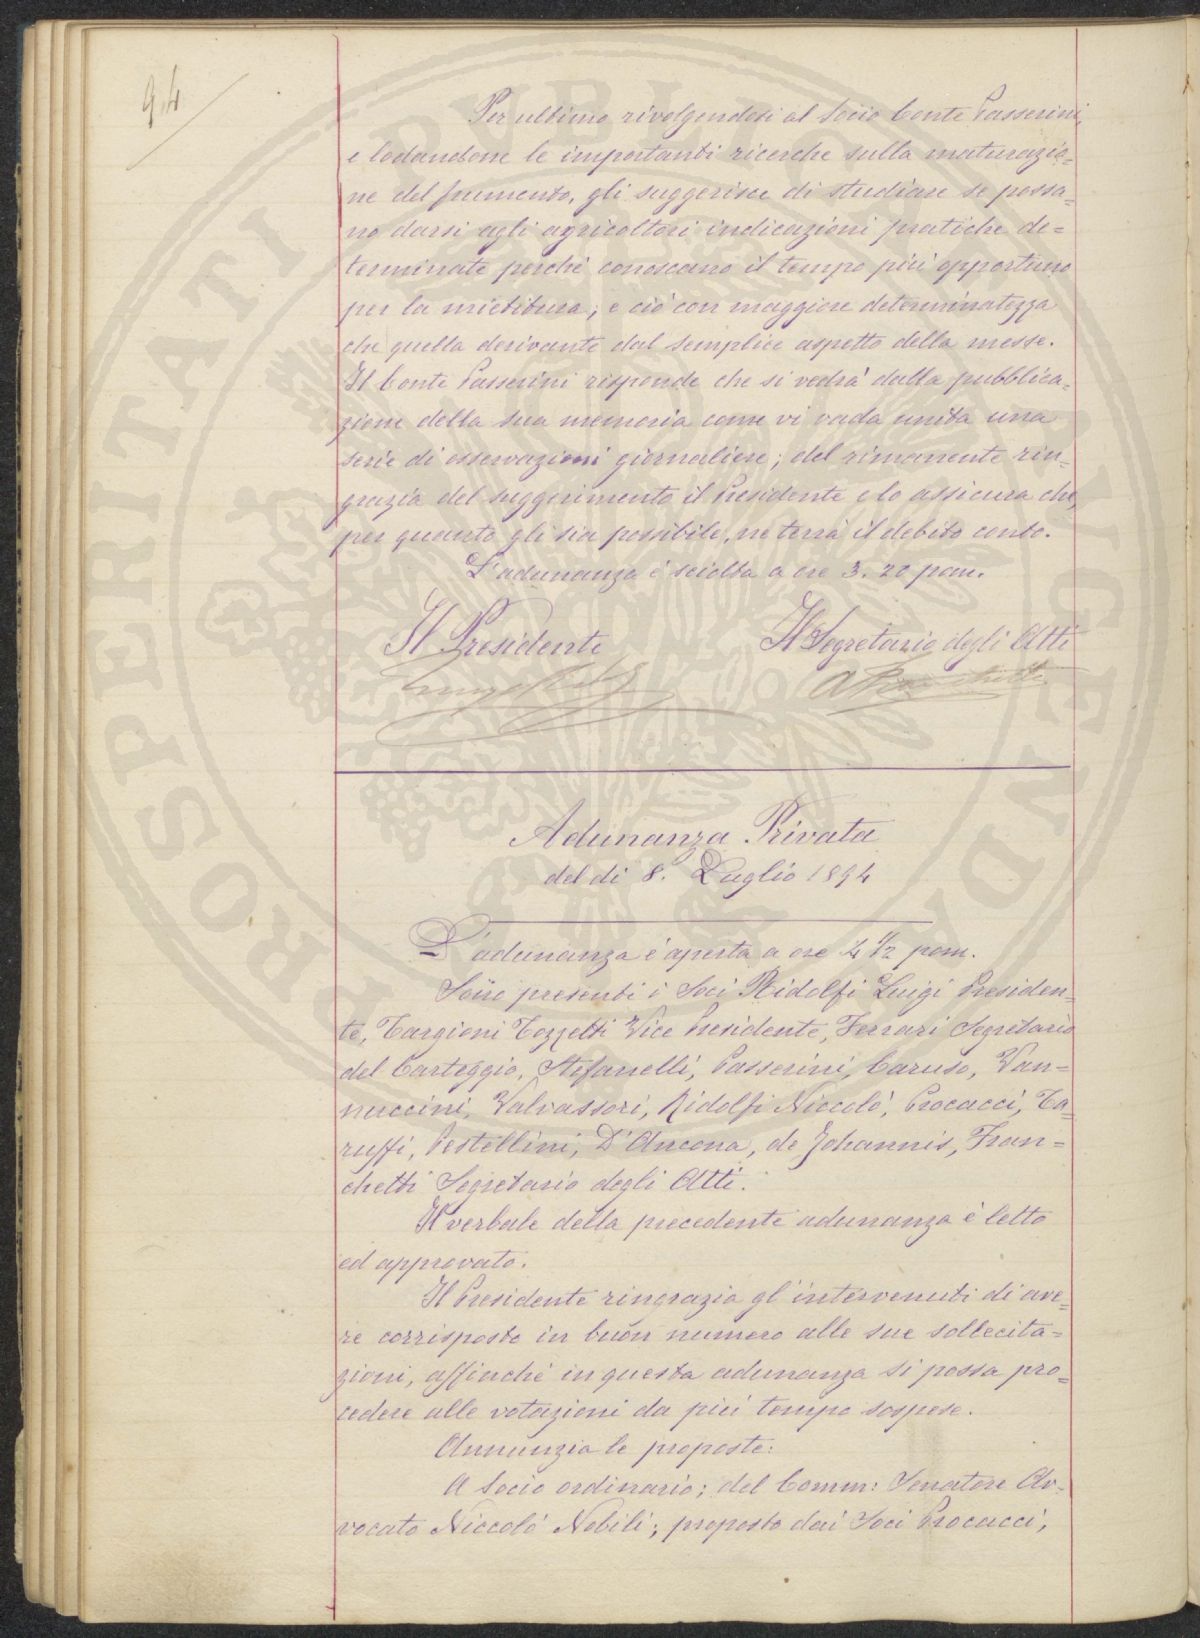 94
Per ultimo rivolgendosi al Socio Conte Passerini,
e lodandone le importanti ricerche sulla maturazio=
ne del frumento, gli suggerisce di studiare se possa=
no darsi agli agricoltori indicazioni pratiche de=
terminate perchè conoscano il tempo più opportuno
per la mietitura; e ciò con maggiore determinatezza
che quella derivante dal semplice aspetto della messe.
Il Conte Passerini risponde che si vedrà dalla pubblica=
zione della sua memoria come vi vada unita una
serie di osservazioni giornaliere; del rimanente rin=
grazia del suggerimento il Presidente e lo assicura che,
per quanto gli sia possibile, ne terrà il debito conto.
L'adunanza è sciolta a ore 3.20 pom.
Il Presidente
Il Segretario degli Atti
Adunanza Privata
del dì 8. Luglio 1894
L'adunanza è aperta a ore 4 1/2 pom.
Sono presenti i Soci Ridolfi Luigi Presiden=
te, Targioni Tozzetti Vice Presidente, Ferrari Segretario
del Carteggio, Stefanelli, Passerini, Caruso, Van=
nuccini, Valvassori, Ridolfi Niccolò, Procacci, Ta=
ruffi, Pestellini, D'Ancona, de Johannis, Fran=
chetti Segretario degli Atti.
Il verbale della precedente adunanza è letto
ed approvato.
Il Presidente ringrazia gl'intervenuti di ave=
re corrisposto in buon numero alle sue sollecita=
zioni, affinchè in questa adunanza si possa pro=
cedere alle votazioni da più tempo sospese.
Annunzia le proposte:
A Socio ordinario; del Comm: Senatore Av=
vocato Niccolò Nobili; proposto dai Soci Procacci,
PROSPERITATI PUBLICAE AUGENDAE